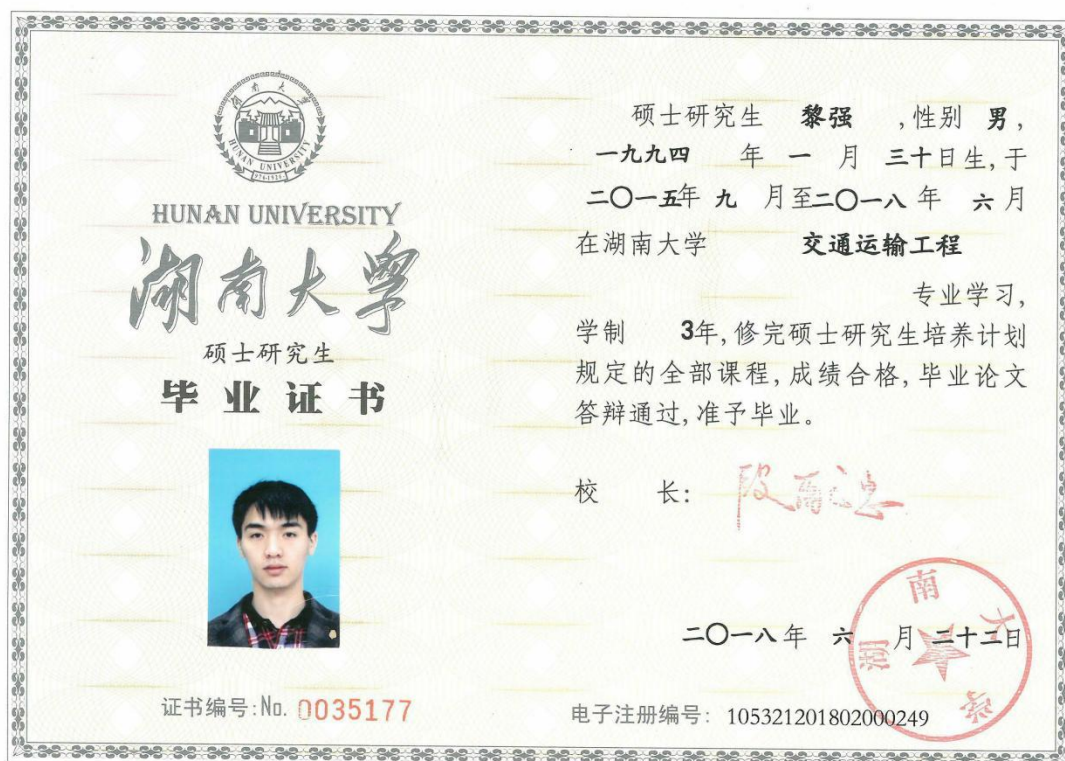 湖南大学
HUNAN UNIVERSITY
HUNAN UNIVERSITY
湖南大学
硕士研究生
毕业证书
证书编号:No. 0035177
硕士研究生 黎强 ,性别 男,
一九九四 年 一 月 三十日生,于
二〇一五年 九 月至二〇一八 年 六 月
在湖南大学 交通运输工程
专业学习,
学制 3年,修完硕士研究生培养计划
规定的全部课程,成绩合格,毕业论文
答辩通过,准予毕业。
校 长:
二〇一八 年 六 月 二十二日
湖南大学
电子注册编号: 105321201802000249